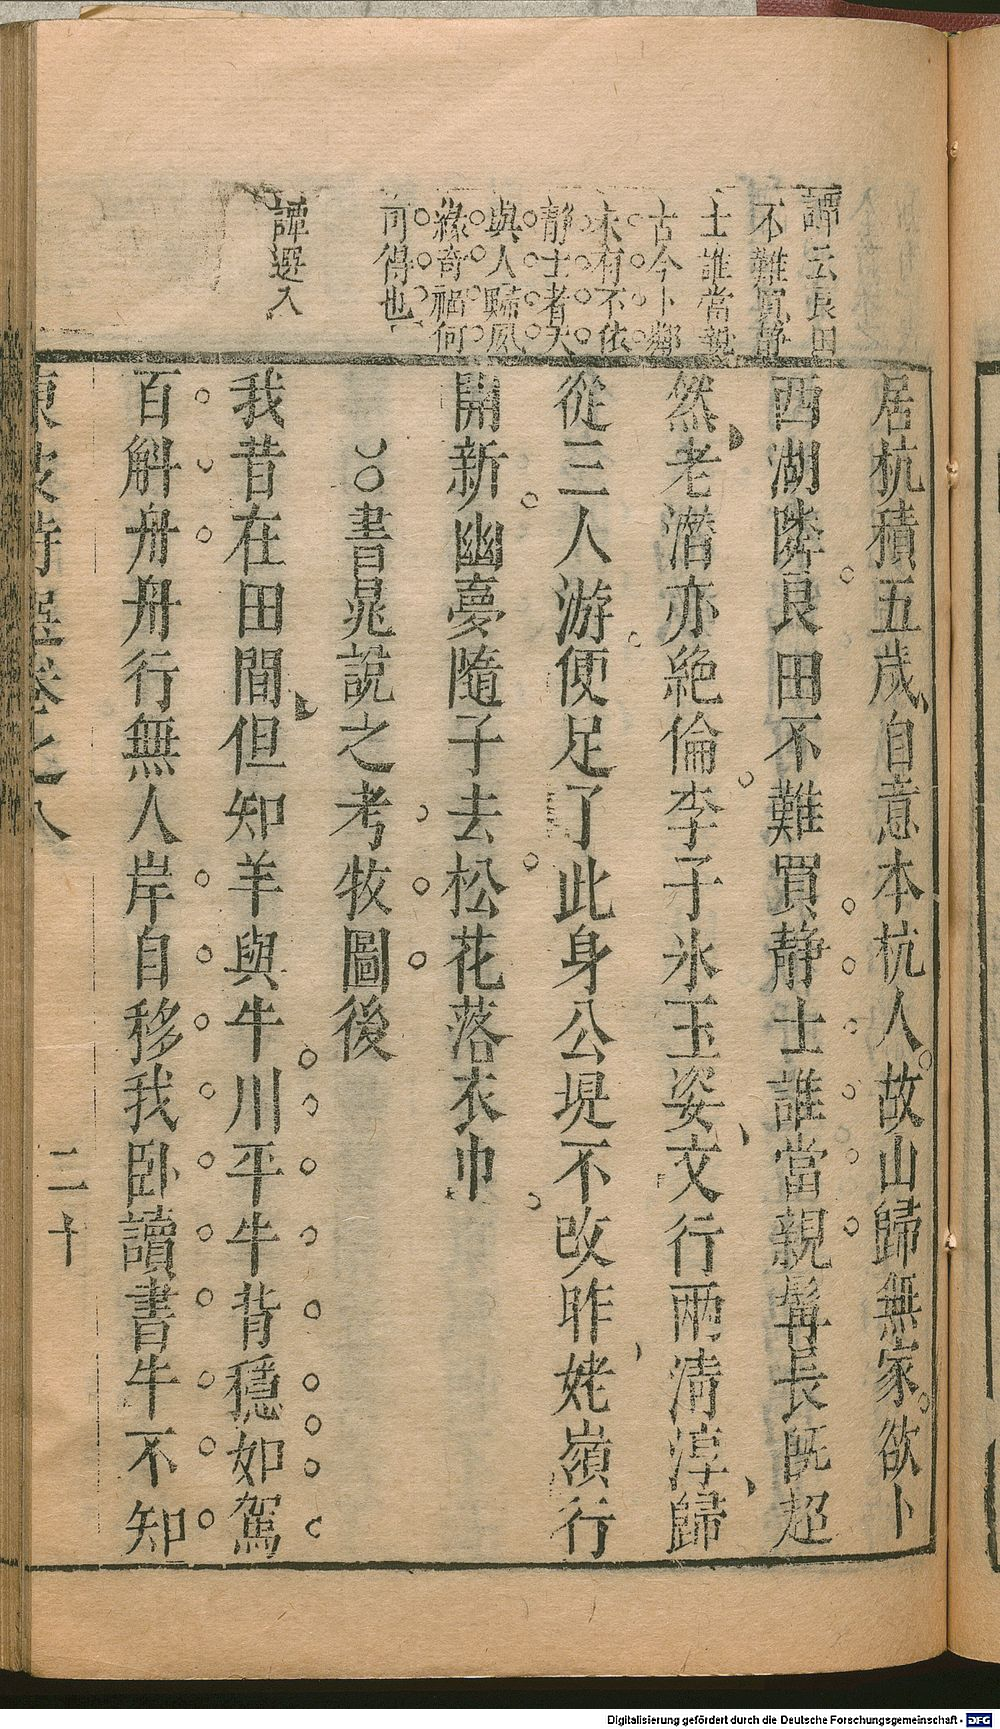 譚云良田
不難買靜
士誰當親
古今卜鄰
未有不依
靜士者大
與人歸夙
緣奇禍何
可得也
譚選入
居杭積五歲自意本杭人故山歸無家欲卜
西湖隣良田不難買靜士誰當親髯長旣超
然老潛亦絶倫李子氷玉姿文行兩淸淳歸
從三人游便足了此身公堤不改昨姥嶺行
開新幽夢隨子去松花落衣巾
書晁說之考牧圖後
我昔在田間但知羊與牛川平牛背穩如駕
百斛舟舟行無人岸自移我卧讀書牛不知
東坡詩選卷之八
二十
Digitalisierung gefördert durch die Deutsche Forschungsgemeinschaft - DFG